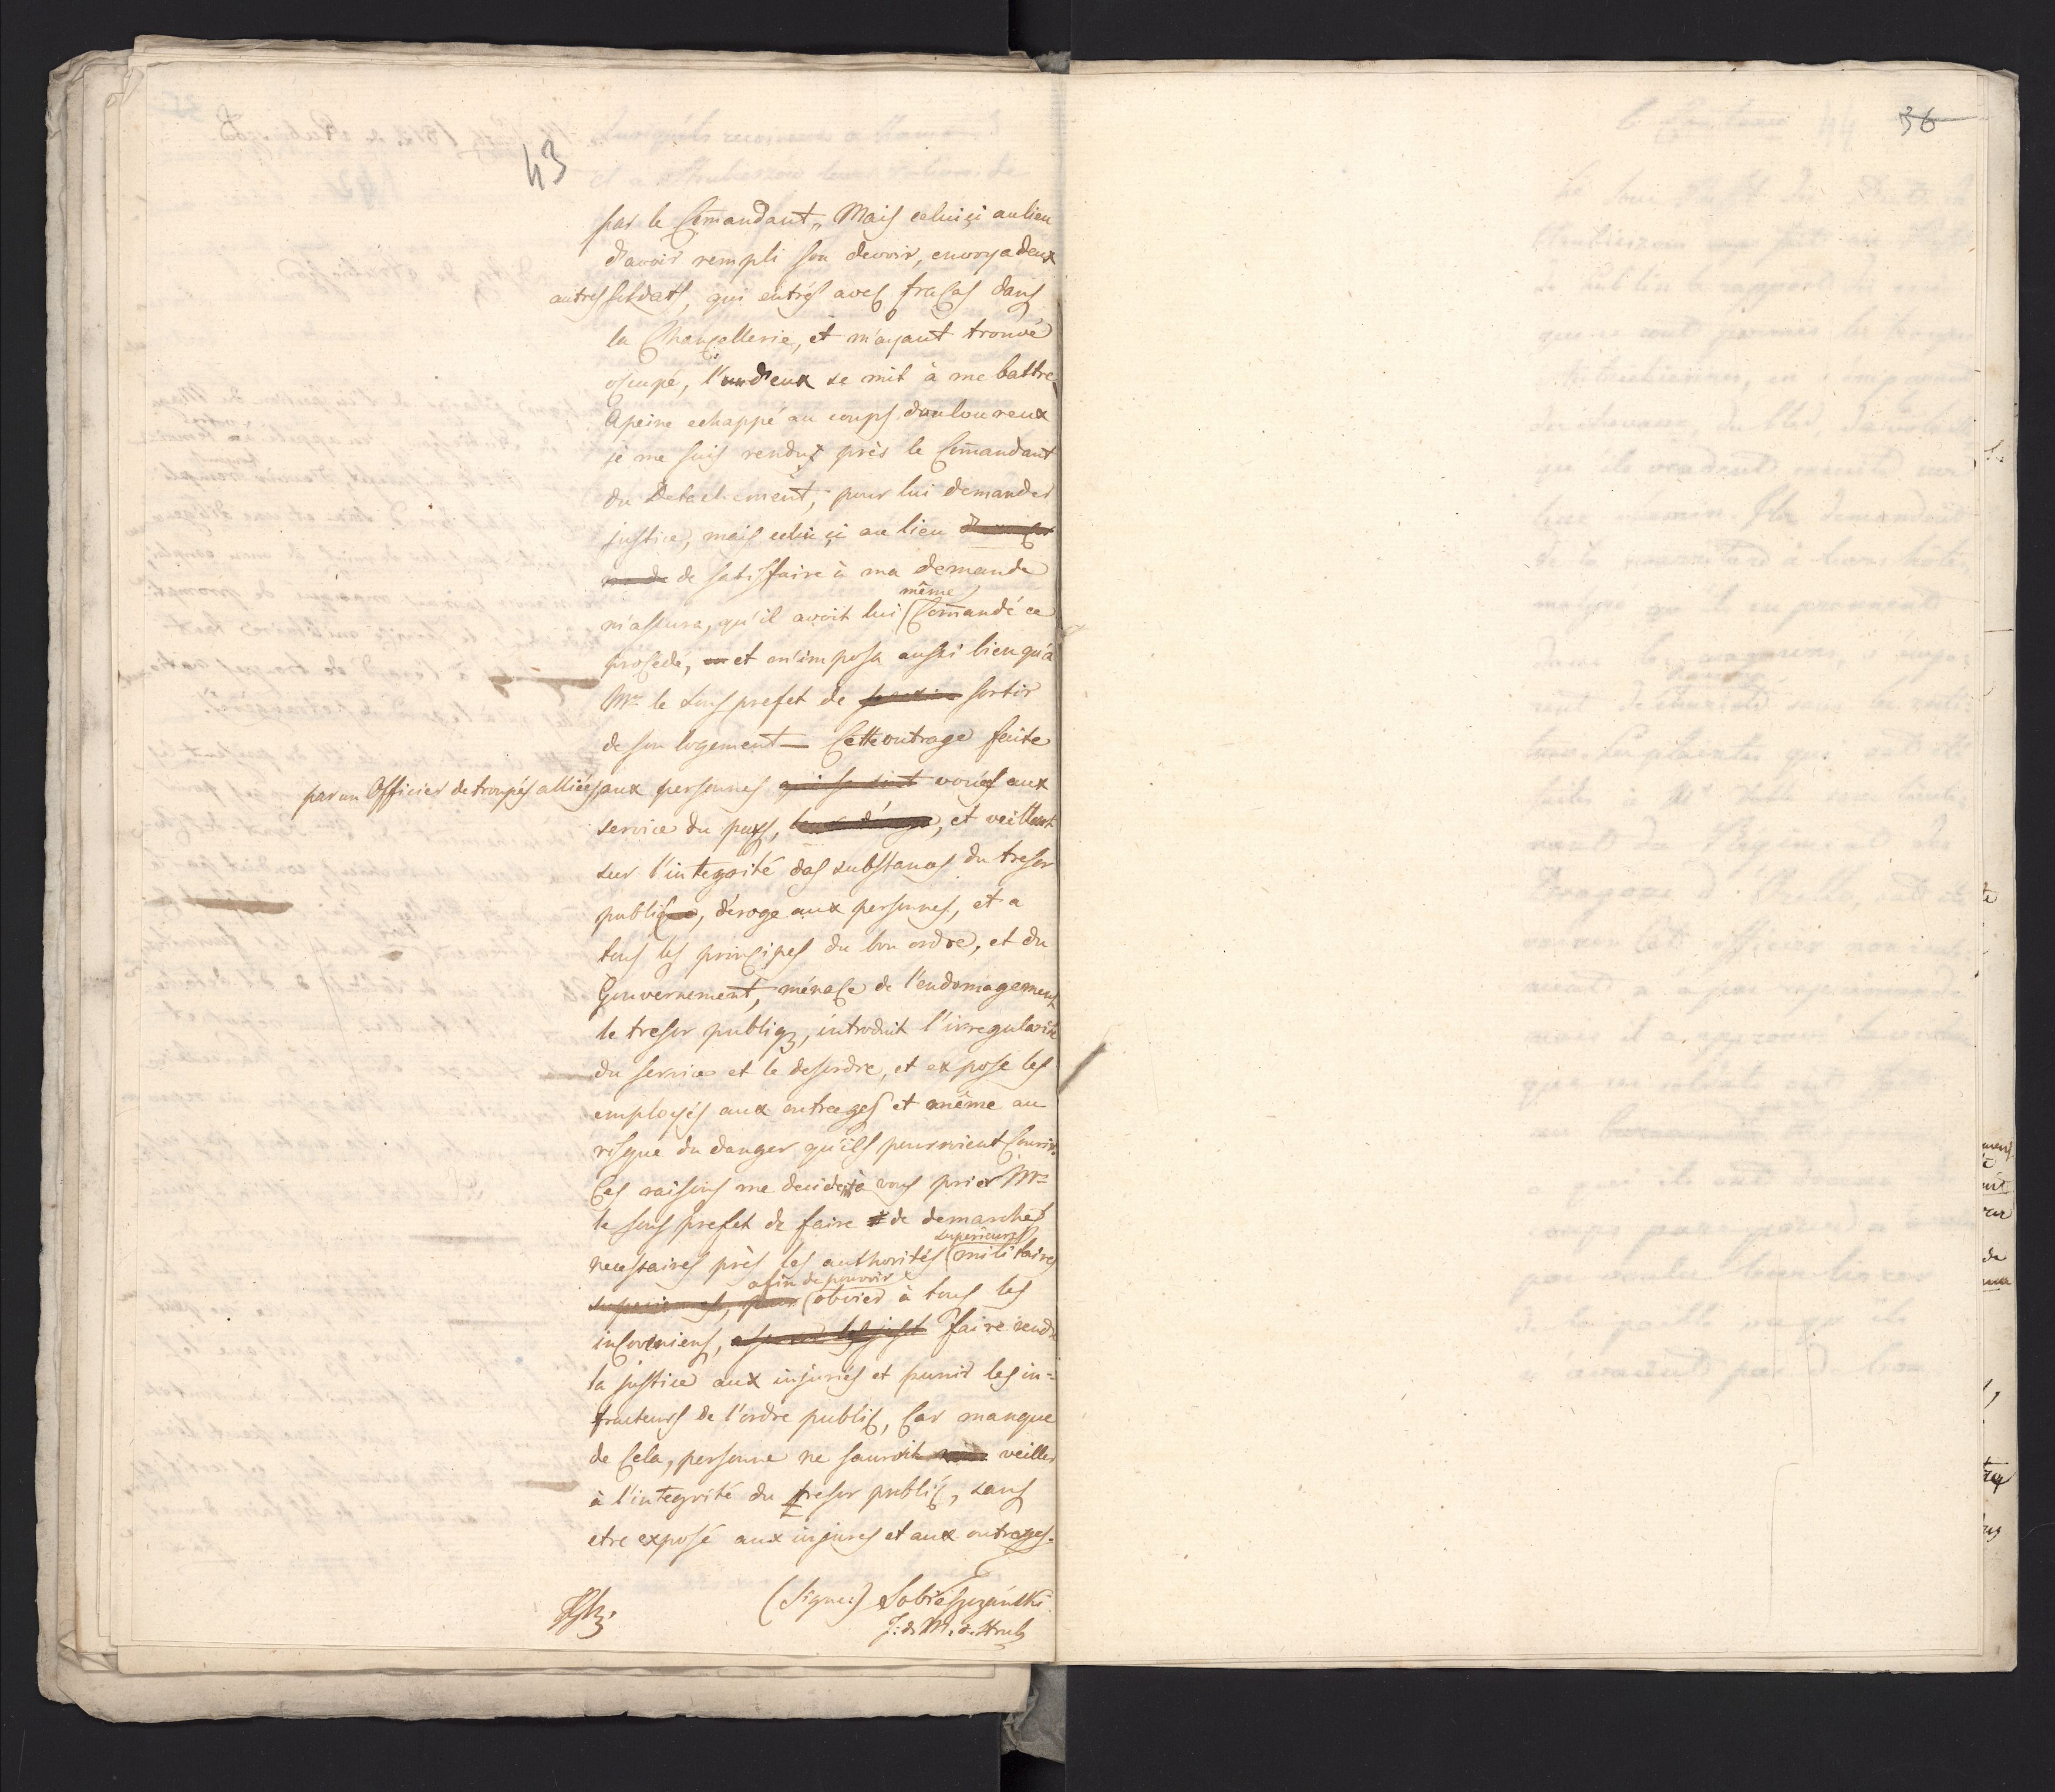 43
par le Com̄andant„ Mais celui çi au lieu
d'avoir rempli son devoir, envoya deux
autres soldats, qui entrés avec fracas dans
la Chancellerie, et m'ayant trouvé
ocupé, l'un d'eux se mit à me battre
Apeine echappé au coups douloureux
je me suis rendu près le Com̄andant
du Detachement, pour lui demander
justice, mais celui çi au lieu
de satisfaire à ma demande
même
m'assura, qu'il avoit lui Com̄andé ce
procedé, et m'imposa aussi bien qu'a
Mr le Sous prefet de sortir
de son logement — Cette outrage faite
par un Officier de troupés alliés, aux personnes qui se sont voués aux
service du pays, et veillent
sur l'integrité des substances du tresor
public, déroge aux personnes, et a
tous les principes du bon ordre, et du
Gouvernement, ménace de l'endomagement
le tresor publiq, introduit l'irregularité
du service et le desordre, et expose les
employés aux outrages et même au
risque du danger qu'ils pourroient Courir.
Ces raisons me decident à vous prier Mr
le sous prefet de faire de demarches
superieures
necessaires près les authorités militaires
afin de pouvoir
superieures, pour obvier à tous les
inconveniens, faire rendre
la justice aux injuriés et punir les in=
fracteurs de l'ordre public, Car manque
de Cela, personne ne sauroit veiller
à l'integrité du tresor public, sans
etre exposé aux injures et aux outrages.
(Signé:) Sobieszczański
J: d. M. d. Hrub
36